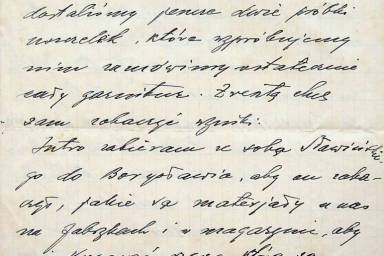 dostaliśmy jeszcze dwie próbki
uszczelek, które wypróbujemy
nim zamówimy ostatecznie
cały garnitur. Zresztą chcę
sam zobaczyć wyniki.
Jutro zabieram ze sobą Sławińskie
go do Borysławia, aby on zoba
czył, jakie są materjały u nas
na fabrykach i w magazynie, aby